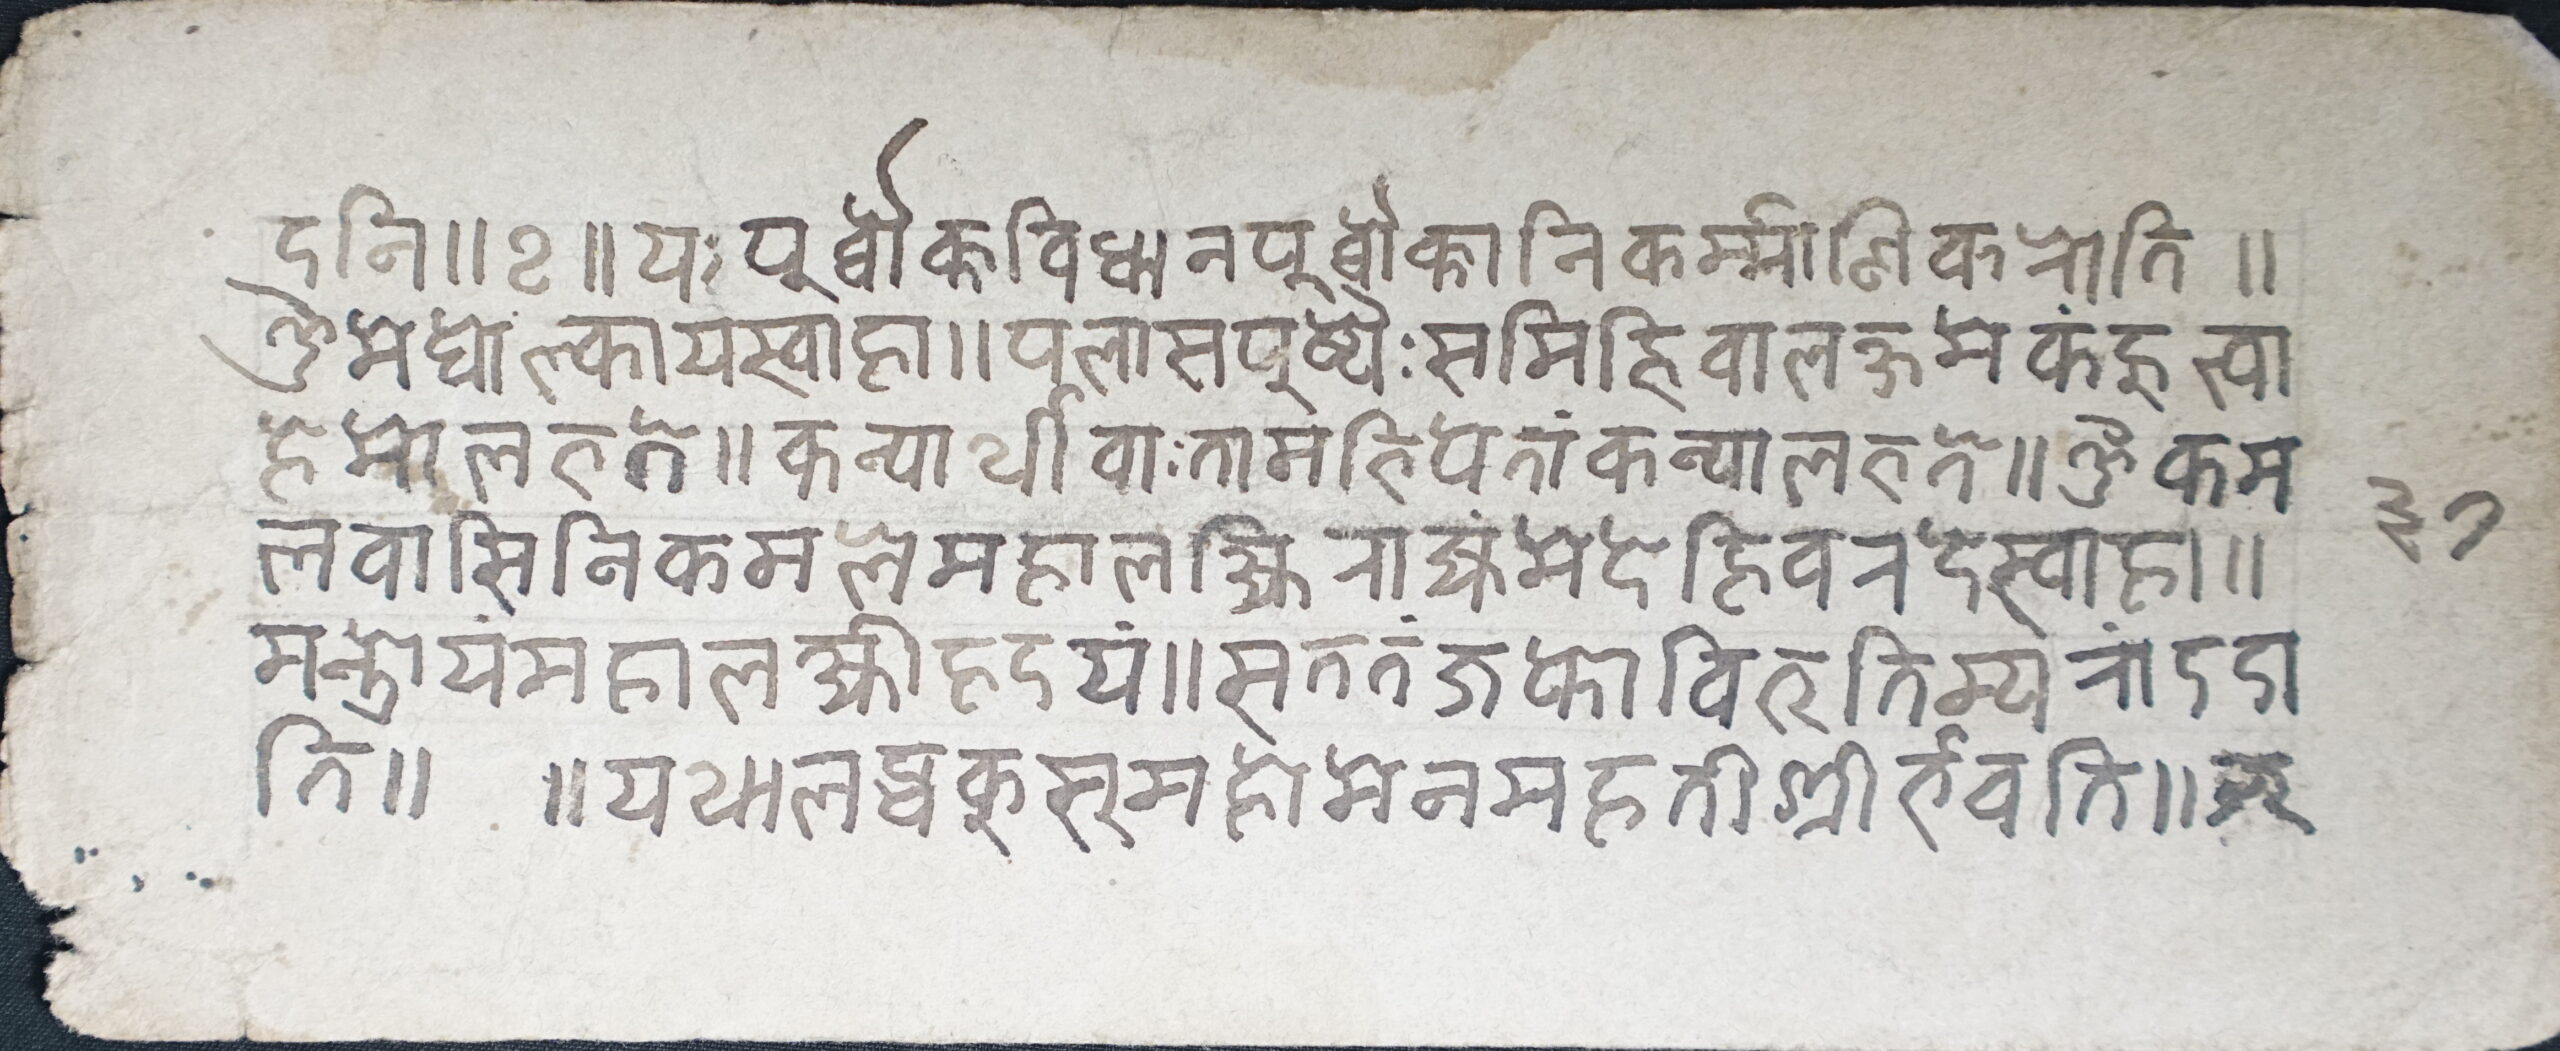 दनि ॥ २ ॥ यः पूर्व्वोक्तविधानपूर्व्वोक्तानिकर्म्माणिकरोति ॥
ॐ मेघोल्कायस्वाहा ॥ पलासपुष्पैः समिद्भिर्वालक्षमेकंहुत्वा
हेमोलभते ॥ कन्यार्थीवाःतामभिपेतांकन्यालभते ॥ ॐ कम
लवासिनिकमलेमहालक्ष्मिराज्यंमेदेहिवरदेस्वाहा ॥
मन्त्रोयंमहालक्ष्मीहृदयं ॥ सततंजप्तोविभूतिम्परांददा
ति ॥ ॥ यथालब्धकुसुमहोमेनमहतीश्रीर्भवति ॥
३७